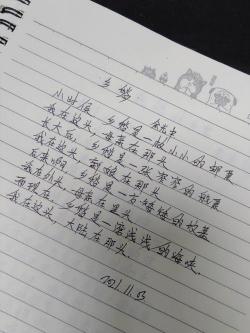 乡愁
余光中
小时候,乡愁是一枚小小的邮票
我在这头,母亲在那头
长大后,乡愁是一张窄窄的船票
我在这头,新娘在那头
后来啊,乡愁是一方矮矮的坟墓
我在外头,母亲在里头
而现在,乡愁是一湾浅浅的海峡
我在这头,大陆在那头.
2021.11.03